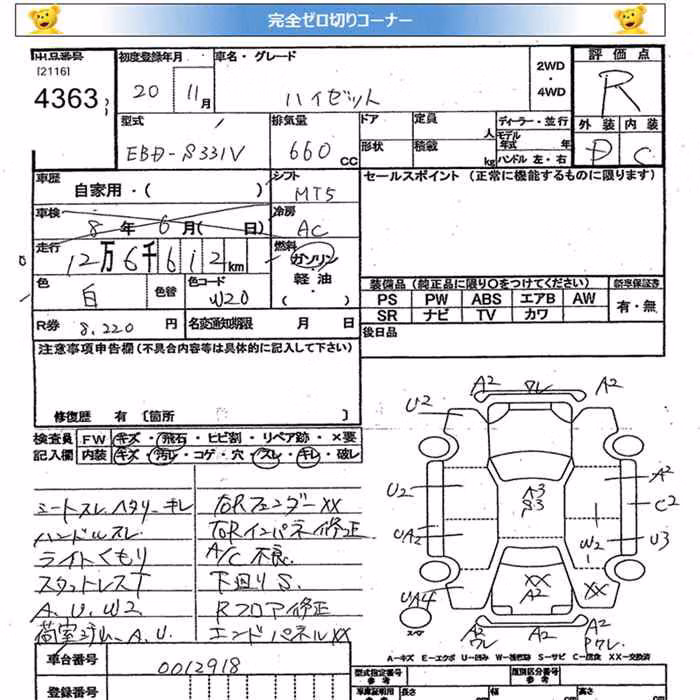 完全ゼロ切りコーナー
出品番号
[2116]
4363
初度登録年月
20 11月
車名・グレード
ハイゼット
2WD
・
4WD
評価点
R
外装 内装
D C
型式
EBD-S331V
排気量
660 CC
ドア
定員
人
形状
積載
kg
ディーラー・並行
モデル
年式 年
ハンドル 左・右
車歴
自家用・( )
シフト
MT5
セールスポイント (正常に機能するものに限ります)
車検
8 年 6 月( 日)
冷房
AC
走行
12万6千612km
燃料
ガソリン
軽油
( ・ )
色
白
色替
色コード
W20
装備品 (純正品に限り○をつけてください)
新車保証書
PS PW ABS エアB AW
SR ナビ TV カワ
有・無
R券 8,220 円
名変通知期限 月 日
後日品
注意事項申告欄(不具合内容等は具体的に記入して下さい)
修復歴 有 [箇所 ]
検査員
記入欄
FW キズ・飛石・ヒビ割・リペア跡・×要
内装 キズ・汚レ・コゲ・穴・スレ・キレ・破レ
シートスレ、ヘタリ、キレ
ハンドルスレ
ライトくもり
スタットレスT
A、U、W2
荷室ゴム、A、U
右Rフェンダー××
右Rインパネ修正
A/C不良
下回りS
Rフロア修正
エンドパネル××
A2 ワレ A2
U2
U2
A3
S3
A2
C2
UA2
W2
U3
××
A2
××
UA4
スペア
A2
ワレ
A2
A2
Pワレ
A-キズ E-エクボ U-凹み W-補修跡 S-サビ C-腐食 XX-交換済
車台番号
0012918
登録番号
型式指定番号
参考
類別区分番号
参考
車庫証明用
参考
長さ
幅
高さ